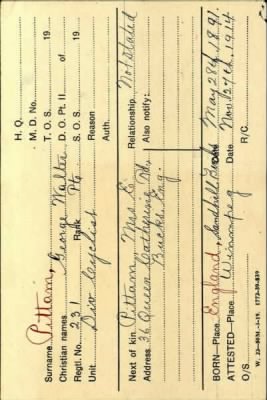 H. Q.
M. D. No.
Surname Pittam, T. O. S. 19
Christian names George Walter D. O. Pt. II of
Regtl. No. 231 Rank Pte S. O. S. 19
Unit Div Cyclist Reason
Auth.
Next of kin Pittam Mrs E Relationship Not stated
Address 36 Queen Catherine Rd, Also notify:
Bucks, Eng.
BORN—Place England, Sandhill Bucks Date May 28th 1891.
ATTESTED—Place Winnipeg Date Nov 27th, 1914
O/S R/C.